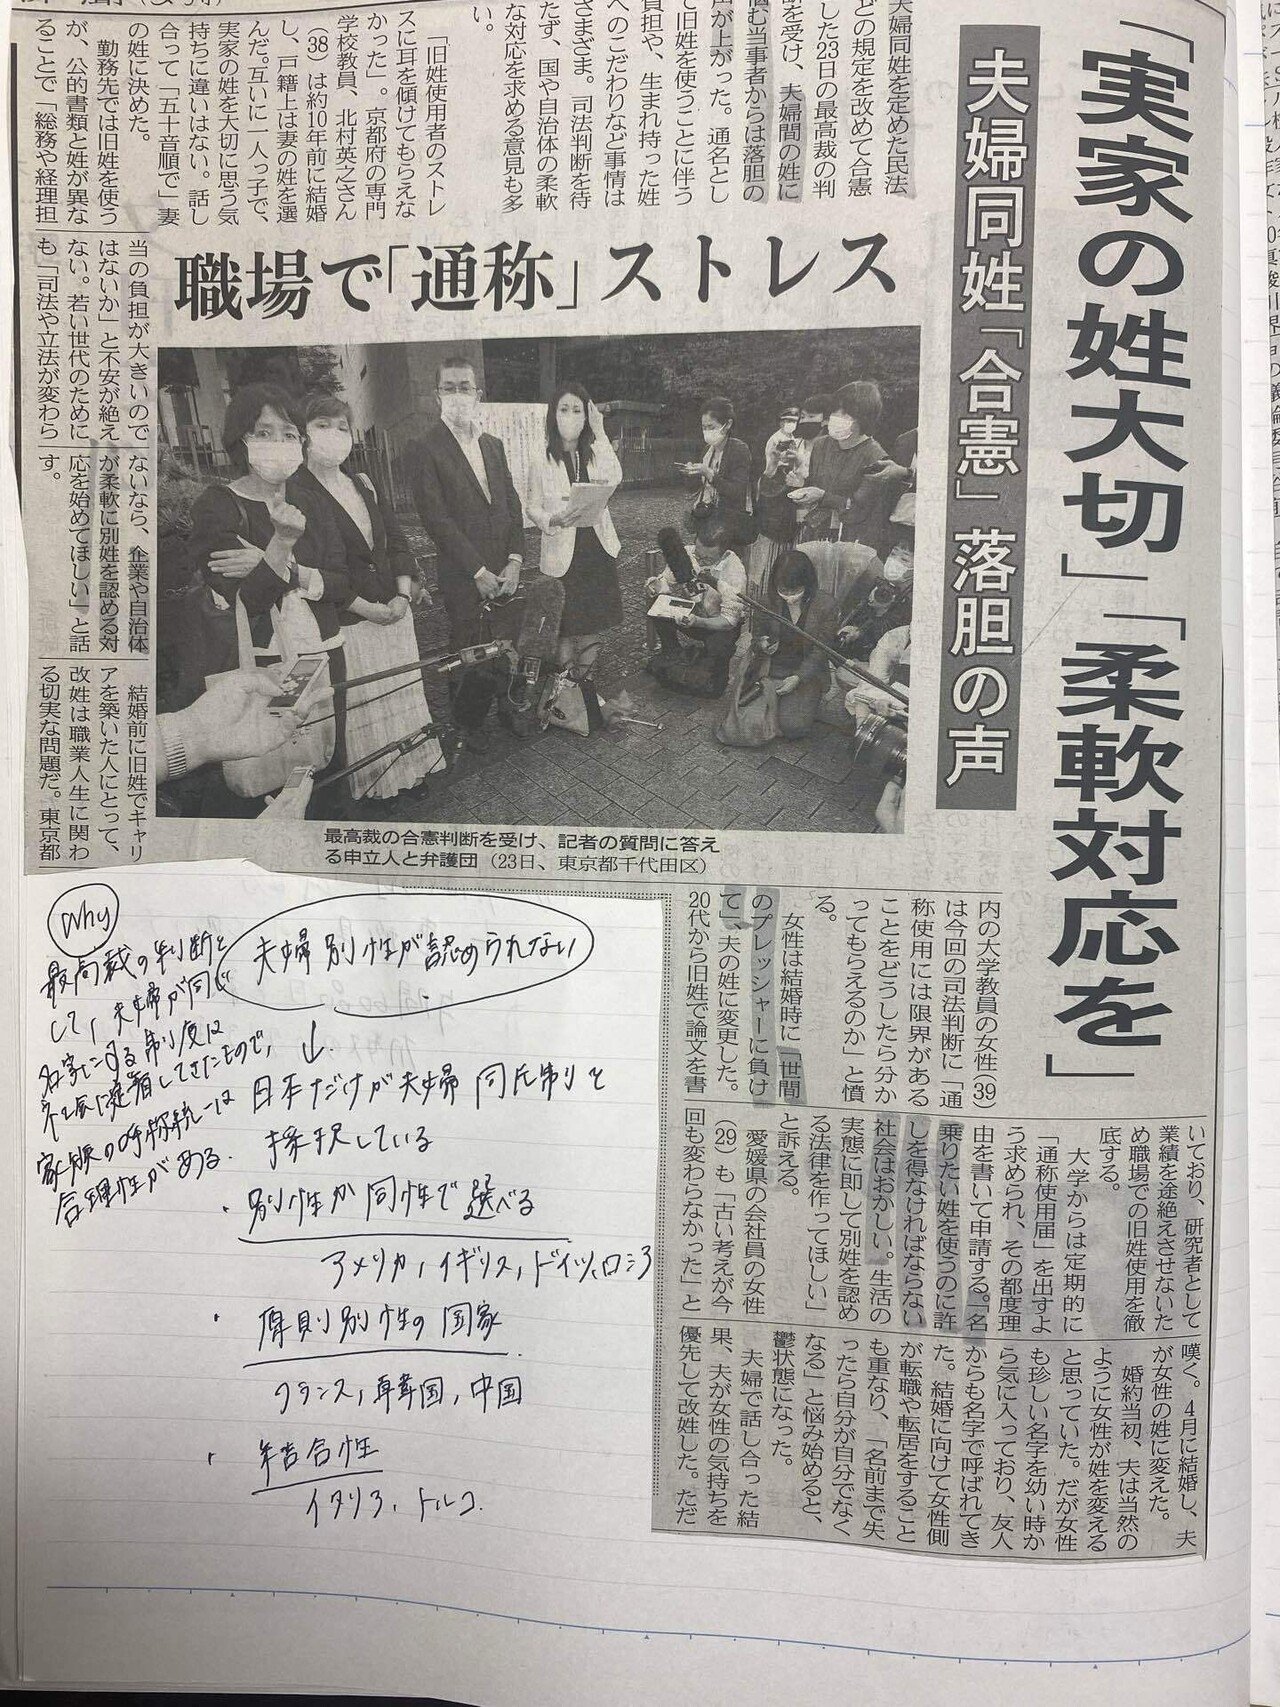 「実家の姓大切」「柔軟対応を」
夫婦同姓「合憲」落胆の声
職場で「通称」ストレス
夫婦同姓を定めた民法
どの規定を改めて合憲
した23日の最高裁の判
断を受け、夫婦間の姓に
悩む当事者からは落胆の
声が上がった。通名とし
て旧姓を使うことに伴う
負担や、生まれ持った姓
へのこだわりなど事情は
さまざま。司法判断を待
たず、国や自治体の柔軟
な対応を求める意見も多
い。
「旧姓使用者のストレ
スに耳を傾けてもらえな
かった」。京都府の専門
学校教員、北村英之さん
(38)は約10年前に結婚
し、戸籍上は妻の姓を選
んだ。互いに一人っ子で、
実家の姓を大切に思う気
持ちに違いはない。話し
合って「五十音順で」妻
の姓に決めた。
勤務先では旧姓を使う
が、公的書類と姓が異な
ることで「総務や経理担
当の負担が大きいので
はないか」と不安が絶え
ない。若い世代のために
も「司法や立法が変わら
ないなら、企業や自治体
が柔軟に別姓を認める対
応を始めてほしい」と話
す。
結婚前に旧姓でキャリ
アを築いた人にとって、
改姓は職業人生に関わ
る切実な問題だ。東京都
最高裁の合憲判断を受け、記者の質問に答え
る申立人と弁護団(23日、東京都千代田区)
内の大学教員の女性(39)
は今回の司法判断に「通
称使用には限界がある
ことをどうしたら分か
ってもらえるのか」と憤
る。
女性は結婚時に「世間
のプレッシャーに負け
て」、夫の姓に変更した。
20代から旧姓で論文を書
いており、研究者として
業績を途絶えさせないた
め職場での旧姓使用を徹
底する。
大学からは定期的に
「通称使用届」を出すよ
う求められ、その都度理
由を書いて申請する。「名
乗りたい姓を使うのに許
しを得なければならない
社会はおかしい。生活の
実態に即して別姓を認め
る法律を作ってほしい」
と訴える。
愛媛県の会社員の女性
(29)も「古い考えが今
回も変わらなかった」と
嘆く。4月に結婚し、夫
が女性の姓に変えた。
婚約当初、夫は当然の
ように女性が姓を変える
と思っていた。だが女性
も珍しい名字を幼い時か
ら気に入っており、友人
からも名字で呼ばれてき
た。結婚に向けて女性側
が転職や転居をすること
も重なり、「名前まで失
ったら自分が自分でなく
なる」と悩み始めると、
鬱状態になった。
夫婦で話し合った結
果、夫が女性の気持ちを
優先して改姓した。ただ
Why
最高裁の判断と
して、夫婦が同じ
名字にする制度は
社会に定着してきたもので、
家族の呼称統一は
合理性がある。
夫婦別性が認められない
↓
日本だけが夫婦同氏制を
採択している
・別性か同性で選べる
アメリカ,イギリス,ドイツ,ロシア
・原則別性の国家
フランス,韓国,中国
・結合性
イタリア,トルコ.